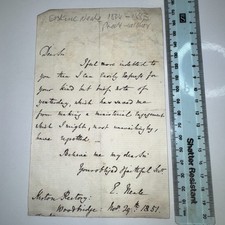 Erskine Neale 1804-1883
Dear Sir
I feel more indebted to
you than I can easily express for
your kind but brief note of
yesterday, which has saved me
from making a ministerial engagement
which I might, most unwittingly, have
regretted.
Believe me my dear Sir
Your obliged & faithful Servt
E. Neale
Kirton Rectory:
Woodbridge: Nov 29th 1851
Shatter Resistant